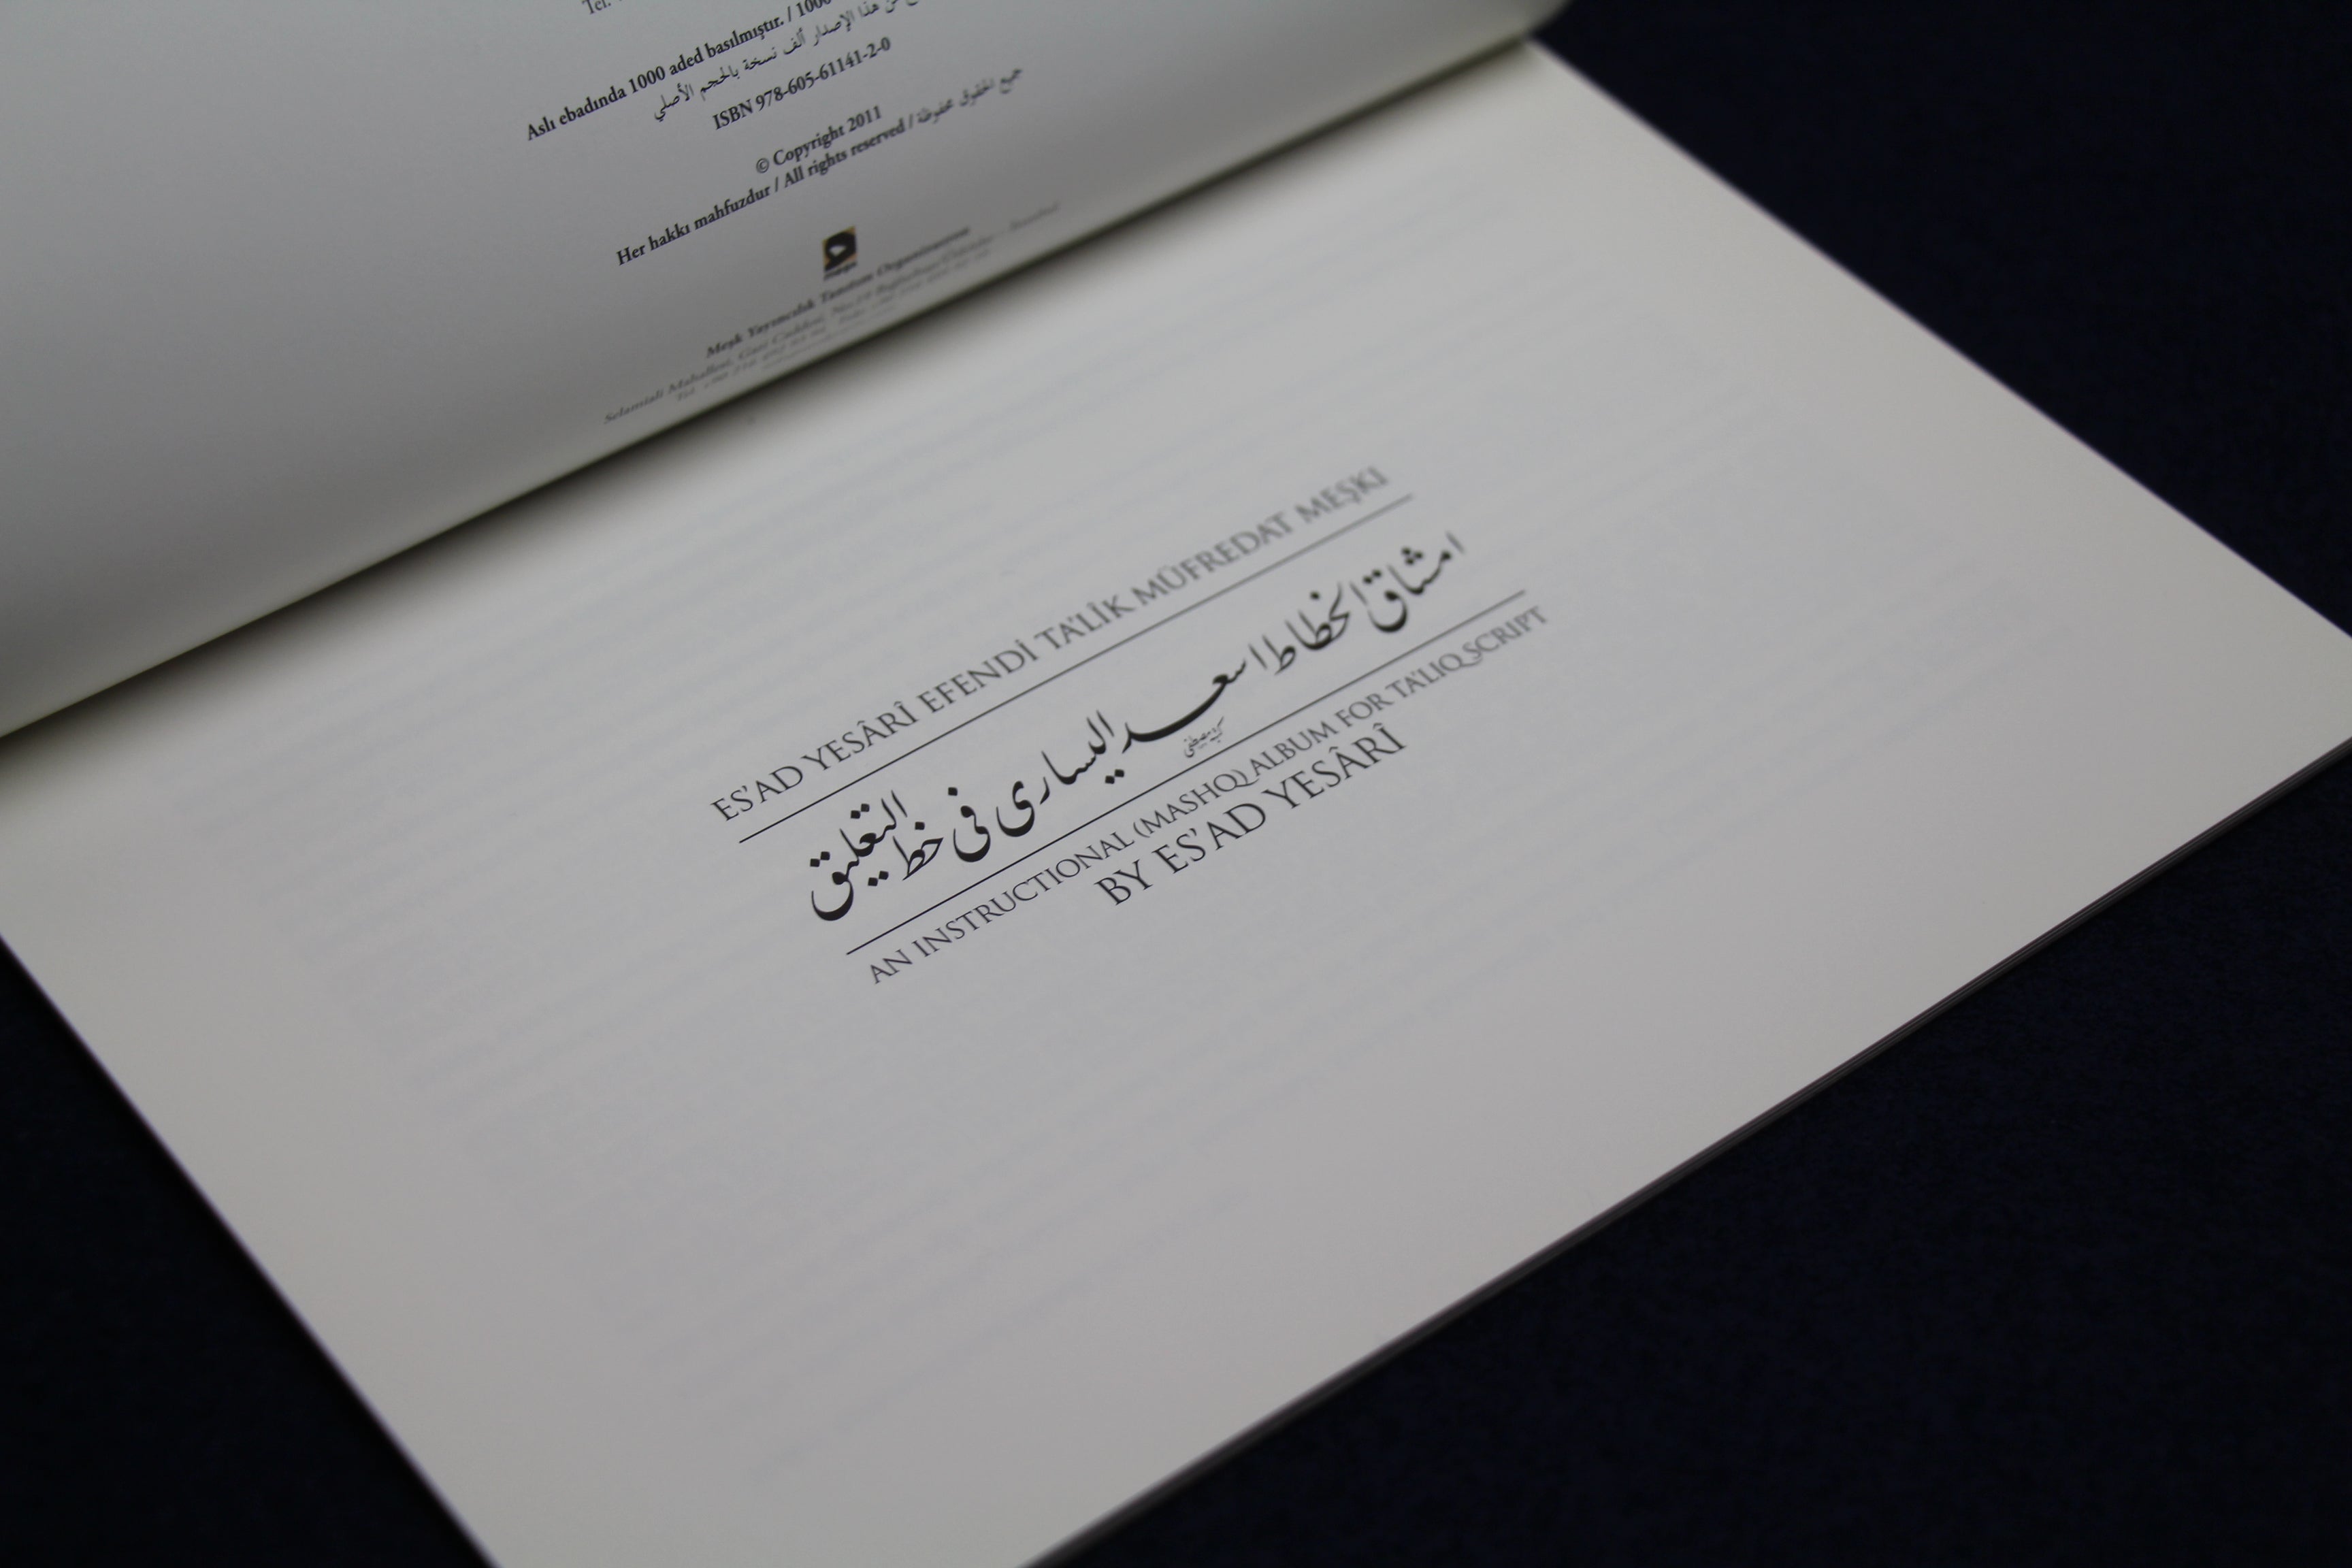 Tel.
Aslı ebadında 1000 aded basılmıştır. / 1000
من هذا الإصدار ألف نسخة بالحجم الأصلي
ISBN 978-605-61141-2-0
© Copyright 2011
Her hakkı mahfuzdur / All rights reserved / جميع الحقوق محفوظة
Meşk Yayıncılık Tanıtım Organizasyon
Selamiali Mahallesi, Gazi Caddesi,
ES'AD YESÂRÎ EFENDİ TA'LÎK MÜFREDAT MEŞKI
امشاق الخطاط اسعد اليسارى فى خط التعليق
AN INSTRUCTIONAL (MASHQ) ALBUM FOR TA'LIQ SCRIPT
BY ES'AD YESÂRÎ